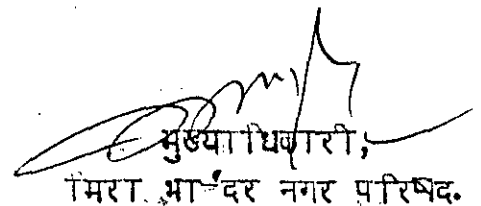 मुख्याधिकारी,
मिरा भाईंदर नगर परिषद.